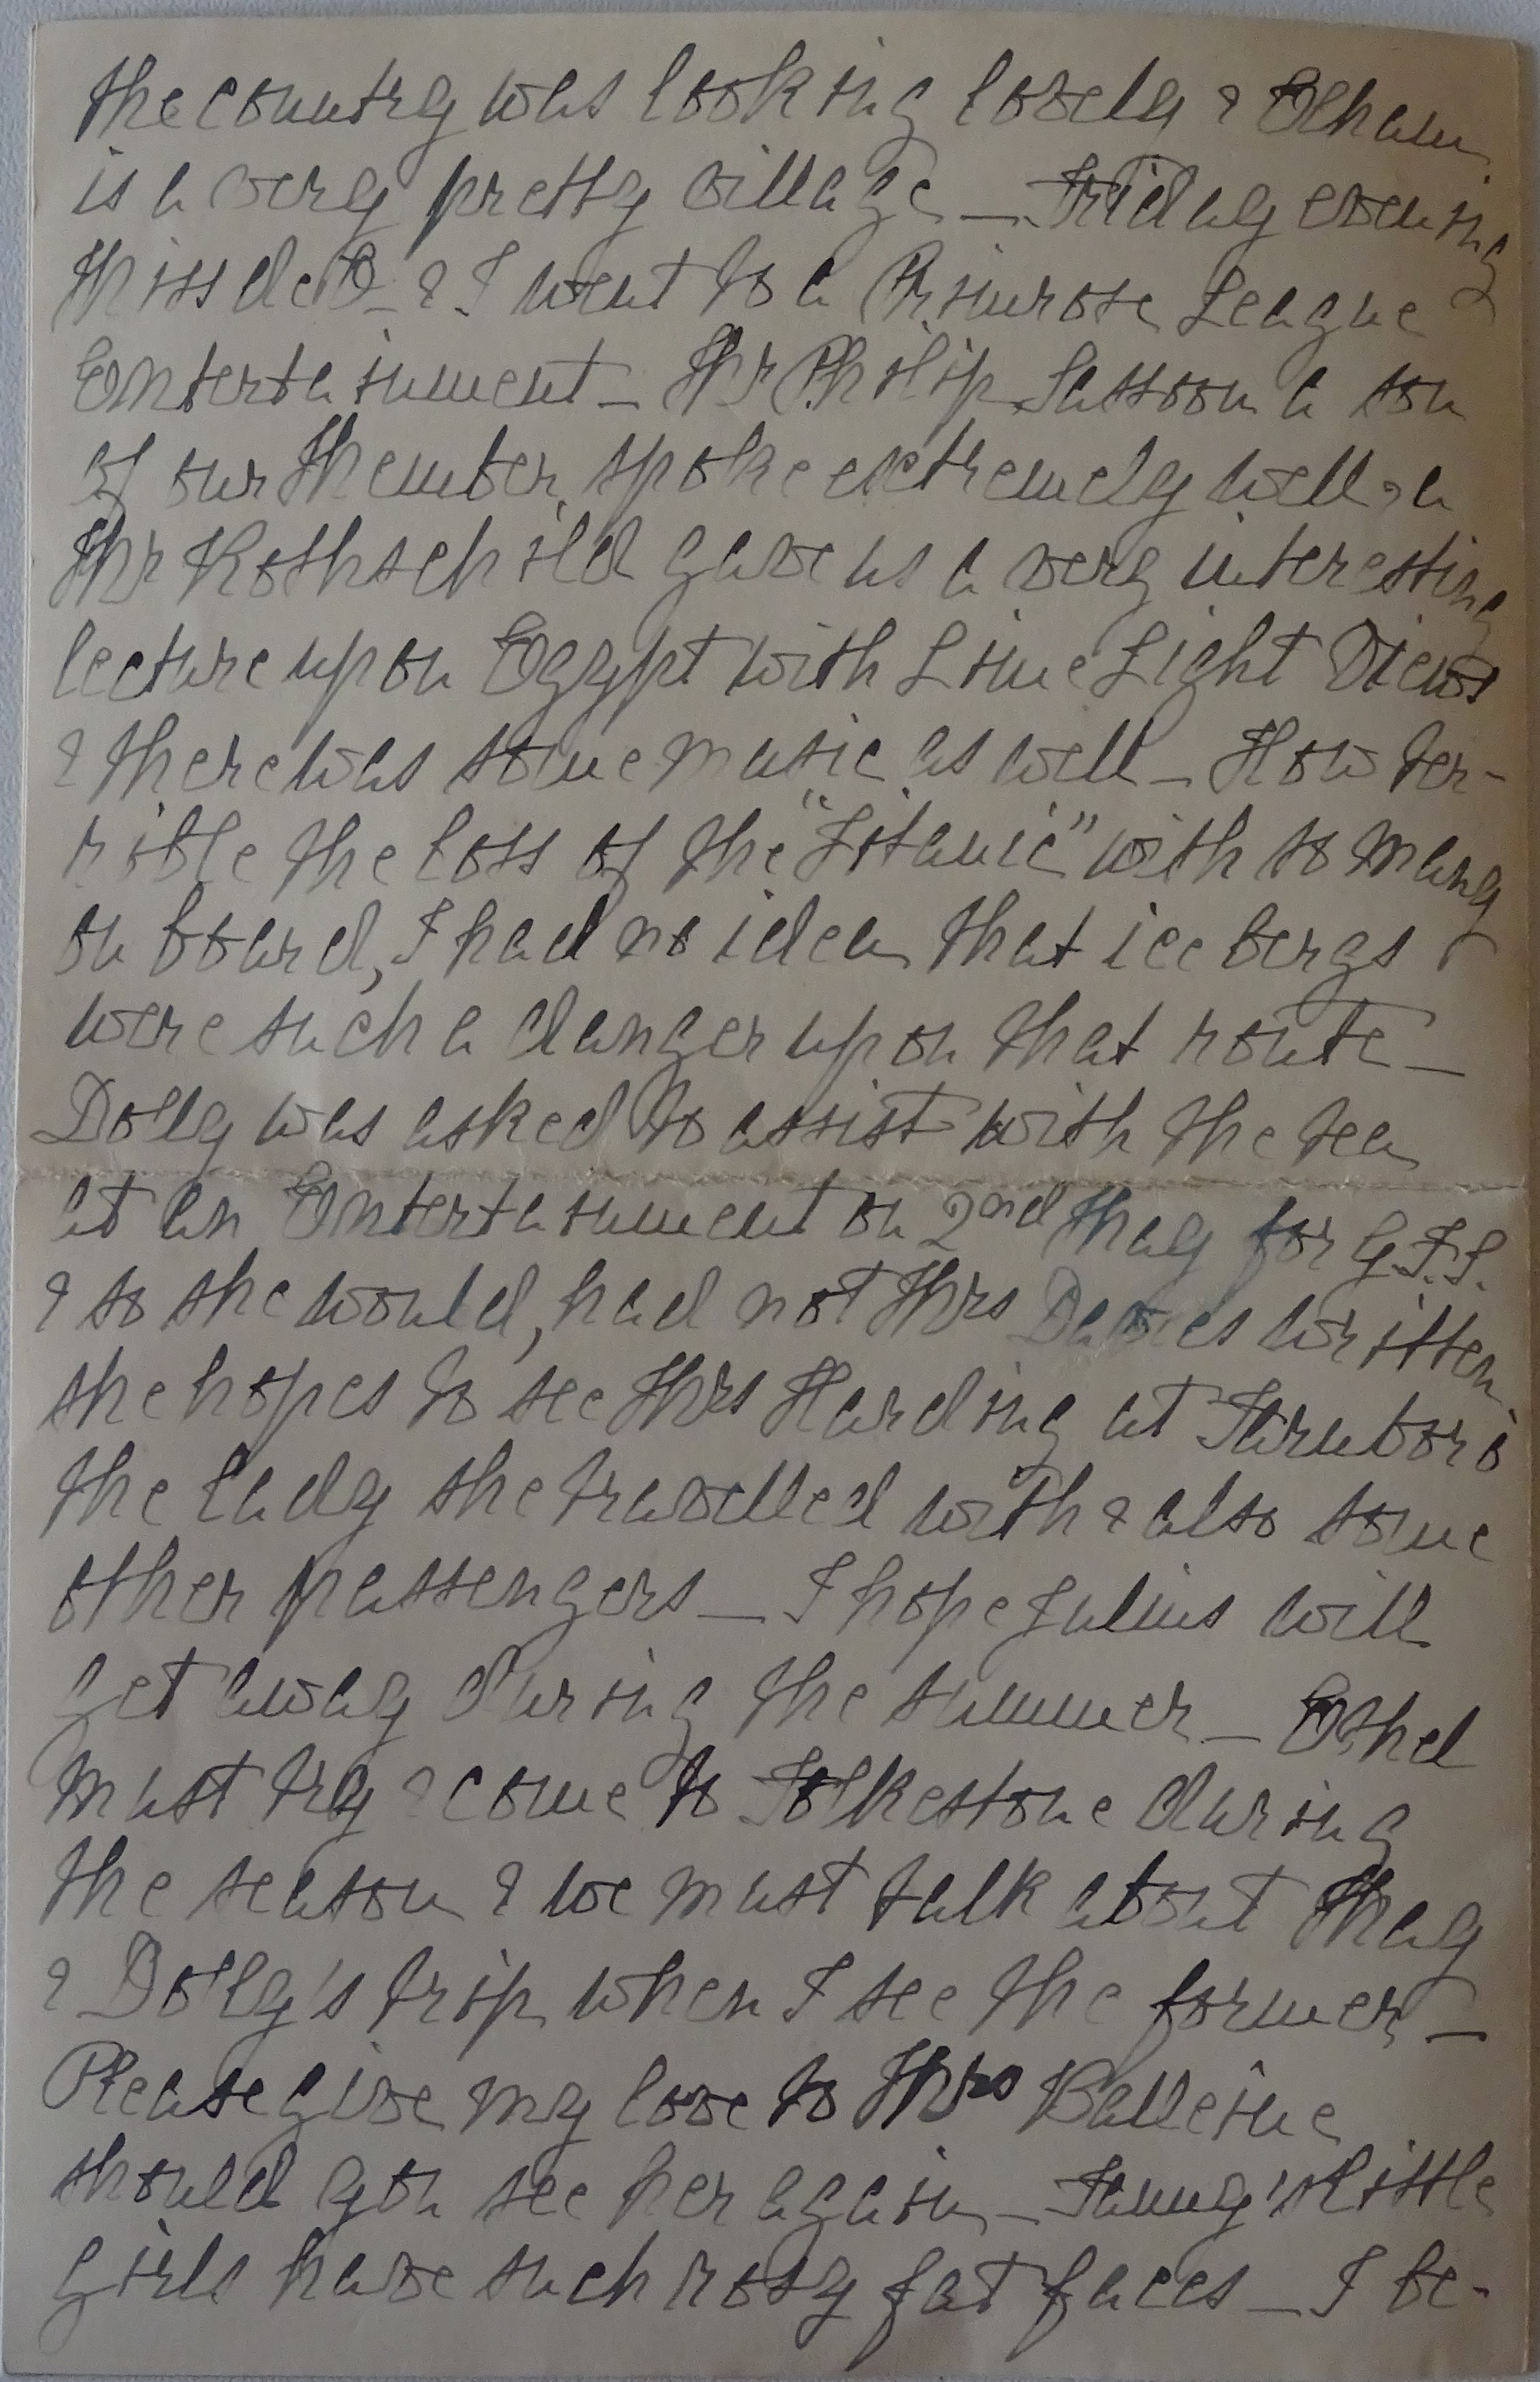 the country was looking lovely & Elham
is a very pretty village _ Friday evening
Miss de B_ & I went to a Primrose League
Entertainment _ Mr Philip Sassoon a son
of our Member, spoke extremely well & a
Mr Rothschild gave us a very interesting
lecture upon Egypt with Lime Light Views
& there was some music as well _ How ter-
rible the loss of the "Titanic" with so many
on board, I had no idea that ice bergs
were such a danger upon that route _
Dolly was asked to assist with the tea
at an Entertainment on 2nd May for G.F.S.
& so she would, had not Mrs Davies written
she hopes to see Mrs Harding at Farnboro'
the Lady she travelled with & also some
other passengers _ I hope Julius will
get away during the summer _ Ethel
must try & come to Folkestone during
the season & we must talk about May
& Dolly's trip when I see the former _
Please give my love to Mrs Balleine
should you see her again _ Fanny's little
girls have such rosy fat faces _ I be-